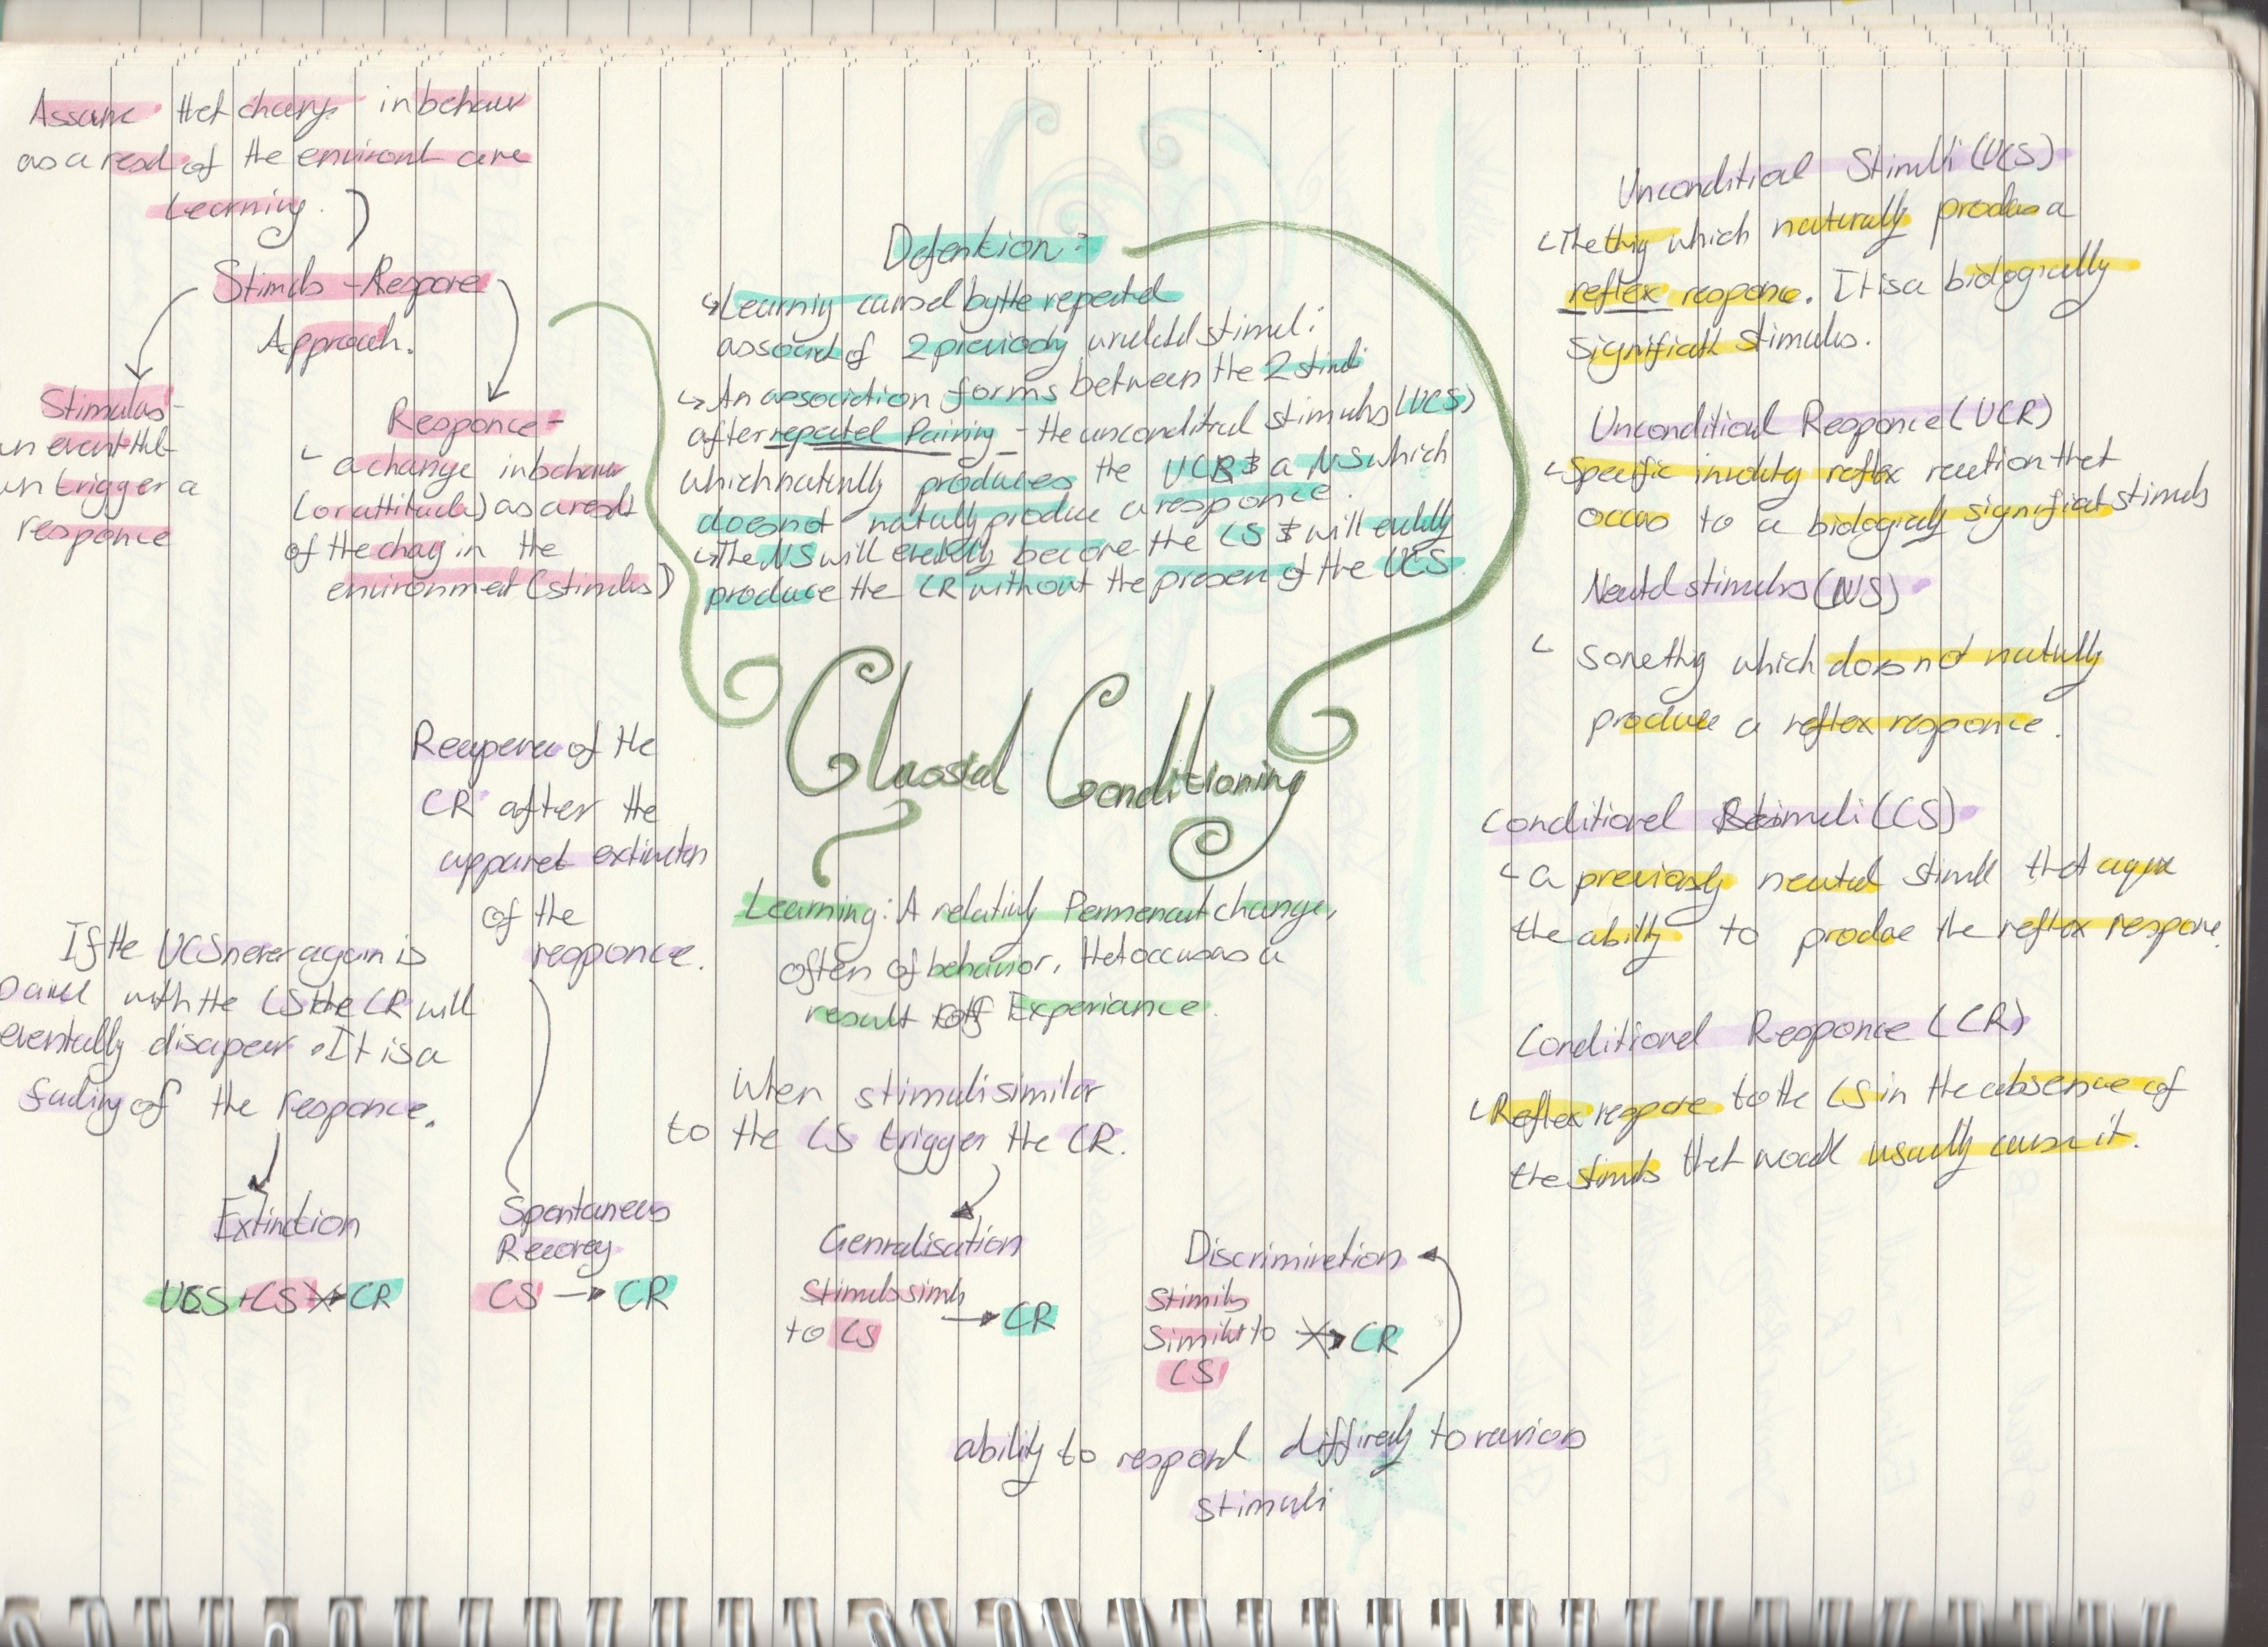 Assume that change in behaviour
as a result of the environt are
Learning.
Stimuls - Respone
Approach.
Stimulus -
an event that
can trigger a
responce
Responce -
a change in behaviour
(or attitude) as a result
of the chang in the
environment (stimulus)
Defention:
Learning caused by the repeated
associat of 2 previously unrelated stimuli
An association forms between the 2 stimuli
after repeated Pairing - the unconditional stimulus (UCS)
which naturally produces the UCR & a NS which
does not naturally produce a responce.
The NS will eventully become the CS & will
produce the CR without the presen of the UCS
Classical Conditioning
Learning: A relativly Permenant change,
often of behavior, that occurs as a
result of Experiance.
Unconditional Stimuli (UCS)
The thing which naturally produces a
reflex responce. It is a biologically
significant stimulus.
Unconditional Responce (UCR)
Specific involuntry reflex reaction that
occurs to a biologically significant stimuls
Neutral stimulus (NS)
Something which does not naturally
produce a reflex responce.
Conditional Stimuli (CS)
a previously neutral stimuli that aquire
the ability to produce the reflex respone.
Conditional Responce (CR)
Reflex respone to the CS in the absence of
the stimuls that would usually cause it.
Reapperence of the
CR after the
apparent extinction
of the
responce.
Spontaneous
Recovrey
CS → CR
If the UCS never again is
paired with the CS the CR will
eventually disapear. It is a
fading of the responce.
Extinction
UCS + CS → CR
When stimuli similar
to the CS trigger the CR.
Genralisation
Stimulus similar
to CS → CR
Discrimination
Stimulus
Similar to → CR
CS
ability to respond differently to various
stimuli